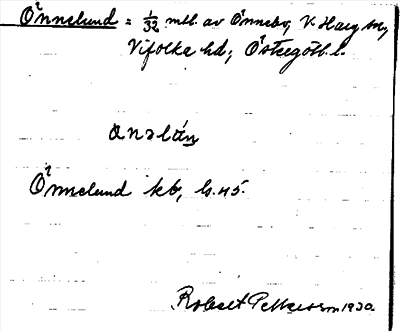 Önnelund = 1/32 mtl. av Önneby, V. Harg sn,
Vifolka hd, Östergötl. l.
Önnelund kb, bl. 45.
Robert Pettersson 1930.